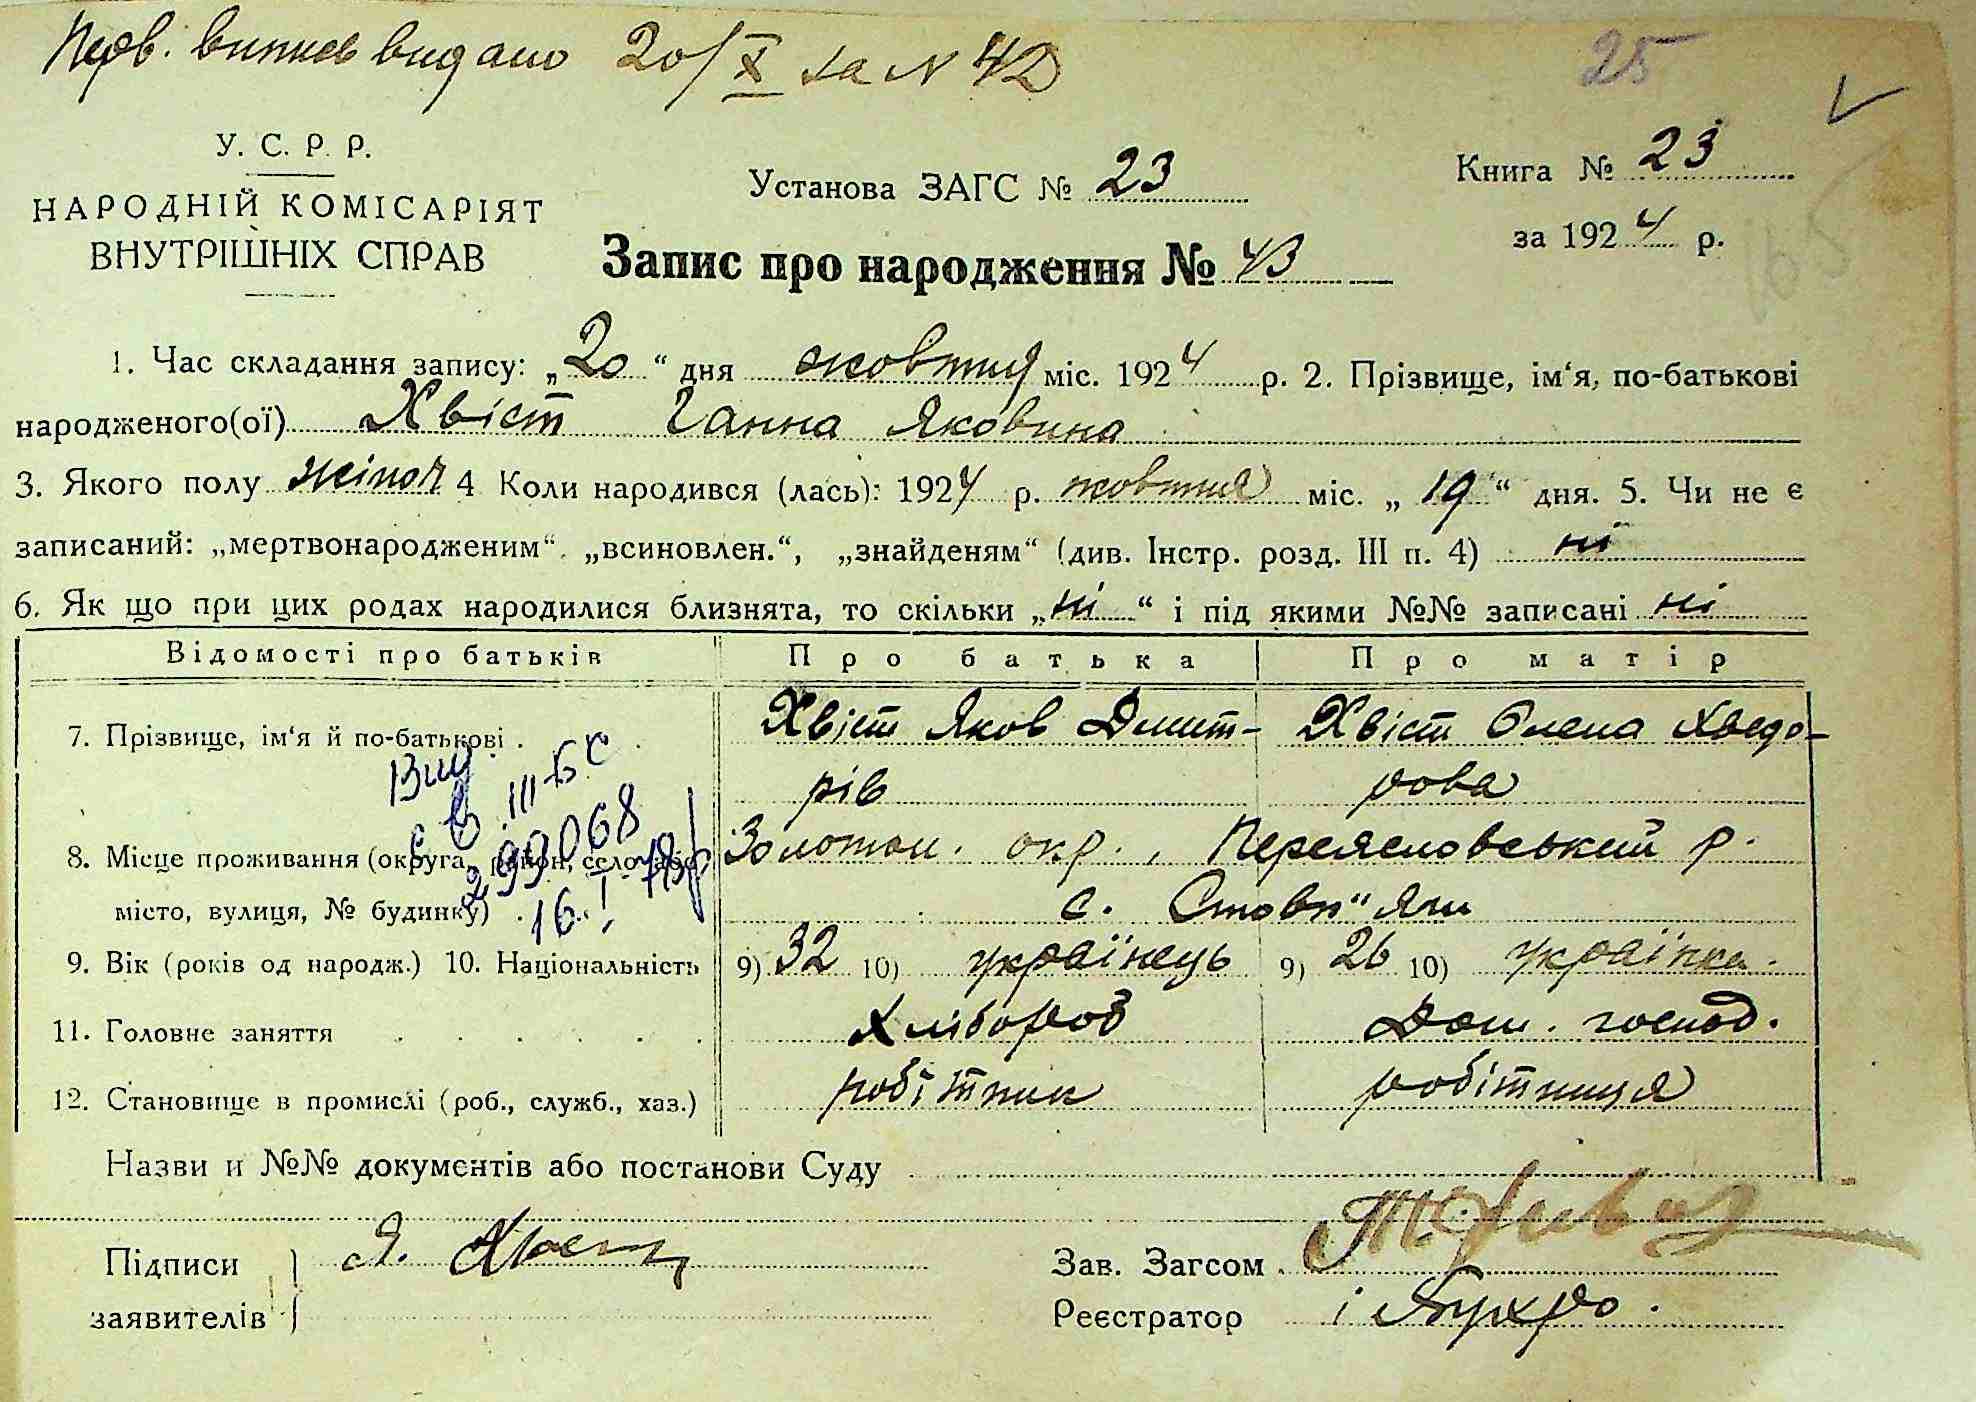 Перв. випись видано 20/X за N 42
25
У. С. Р. Р.
НАРОДНІЙ КОМІСАРІЯТ
ВНУТРІШНІХ СПРАВ
Установа ЗАГС № 23
Книга № 23
за 1924 р.
Запис про народження № 43
1. Час складання запису: „20“ дня жовтня міс. 1924 р. 2. Прізвище, ім‘я, по-батькові
народженого(ої) Хвіст Ганна Яковина
3. Якого полу жіноч 4 Коли народився (лась): 1924 р. жовтня міс. „19“ дня. 5. Чи не є
записаний: „мертвонародженим“, „всиновлен.“, „знайденям“ (див. Інстр. розд. III п. 4) ні
6. Як що при цих родах народилися близнята, то скільки „ні“ і під якими №№ записані ні
Відомості про батьків Про батька Про матір
7. Прізвище, ім‘я й по-батькові . Хвіст Яков Дмит- Хвіст Олена Хведо-
рів рова
8. Місце проживання (округа, район, село або Золотон. окр., Переясловський р.
місто, вулиця, № будинку) . с. Стовп"яги
Вид
III-БС
299068
16.I
9. Вік (років од народж.) 10. Національність 9) 32 10) українець 9) 26 10) українка.
11. Головне заняття . . . . . . Хлібороб Дом. господ.
12. Становище в промислі (роб., служб., хаз.) робітник робітниця
Назви и №№ документів або постанови Суду
Підписи Я. Хвост Зав. Загсом
заявителів Реєстратор